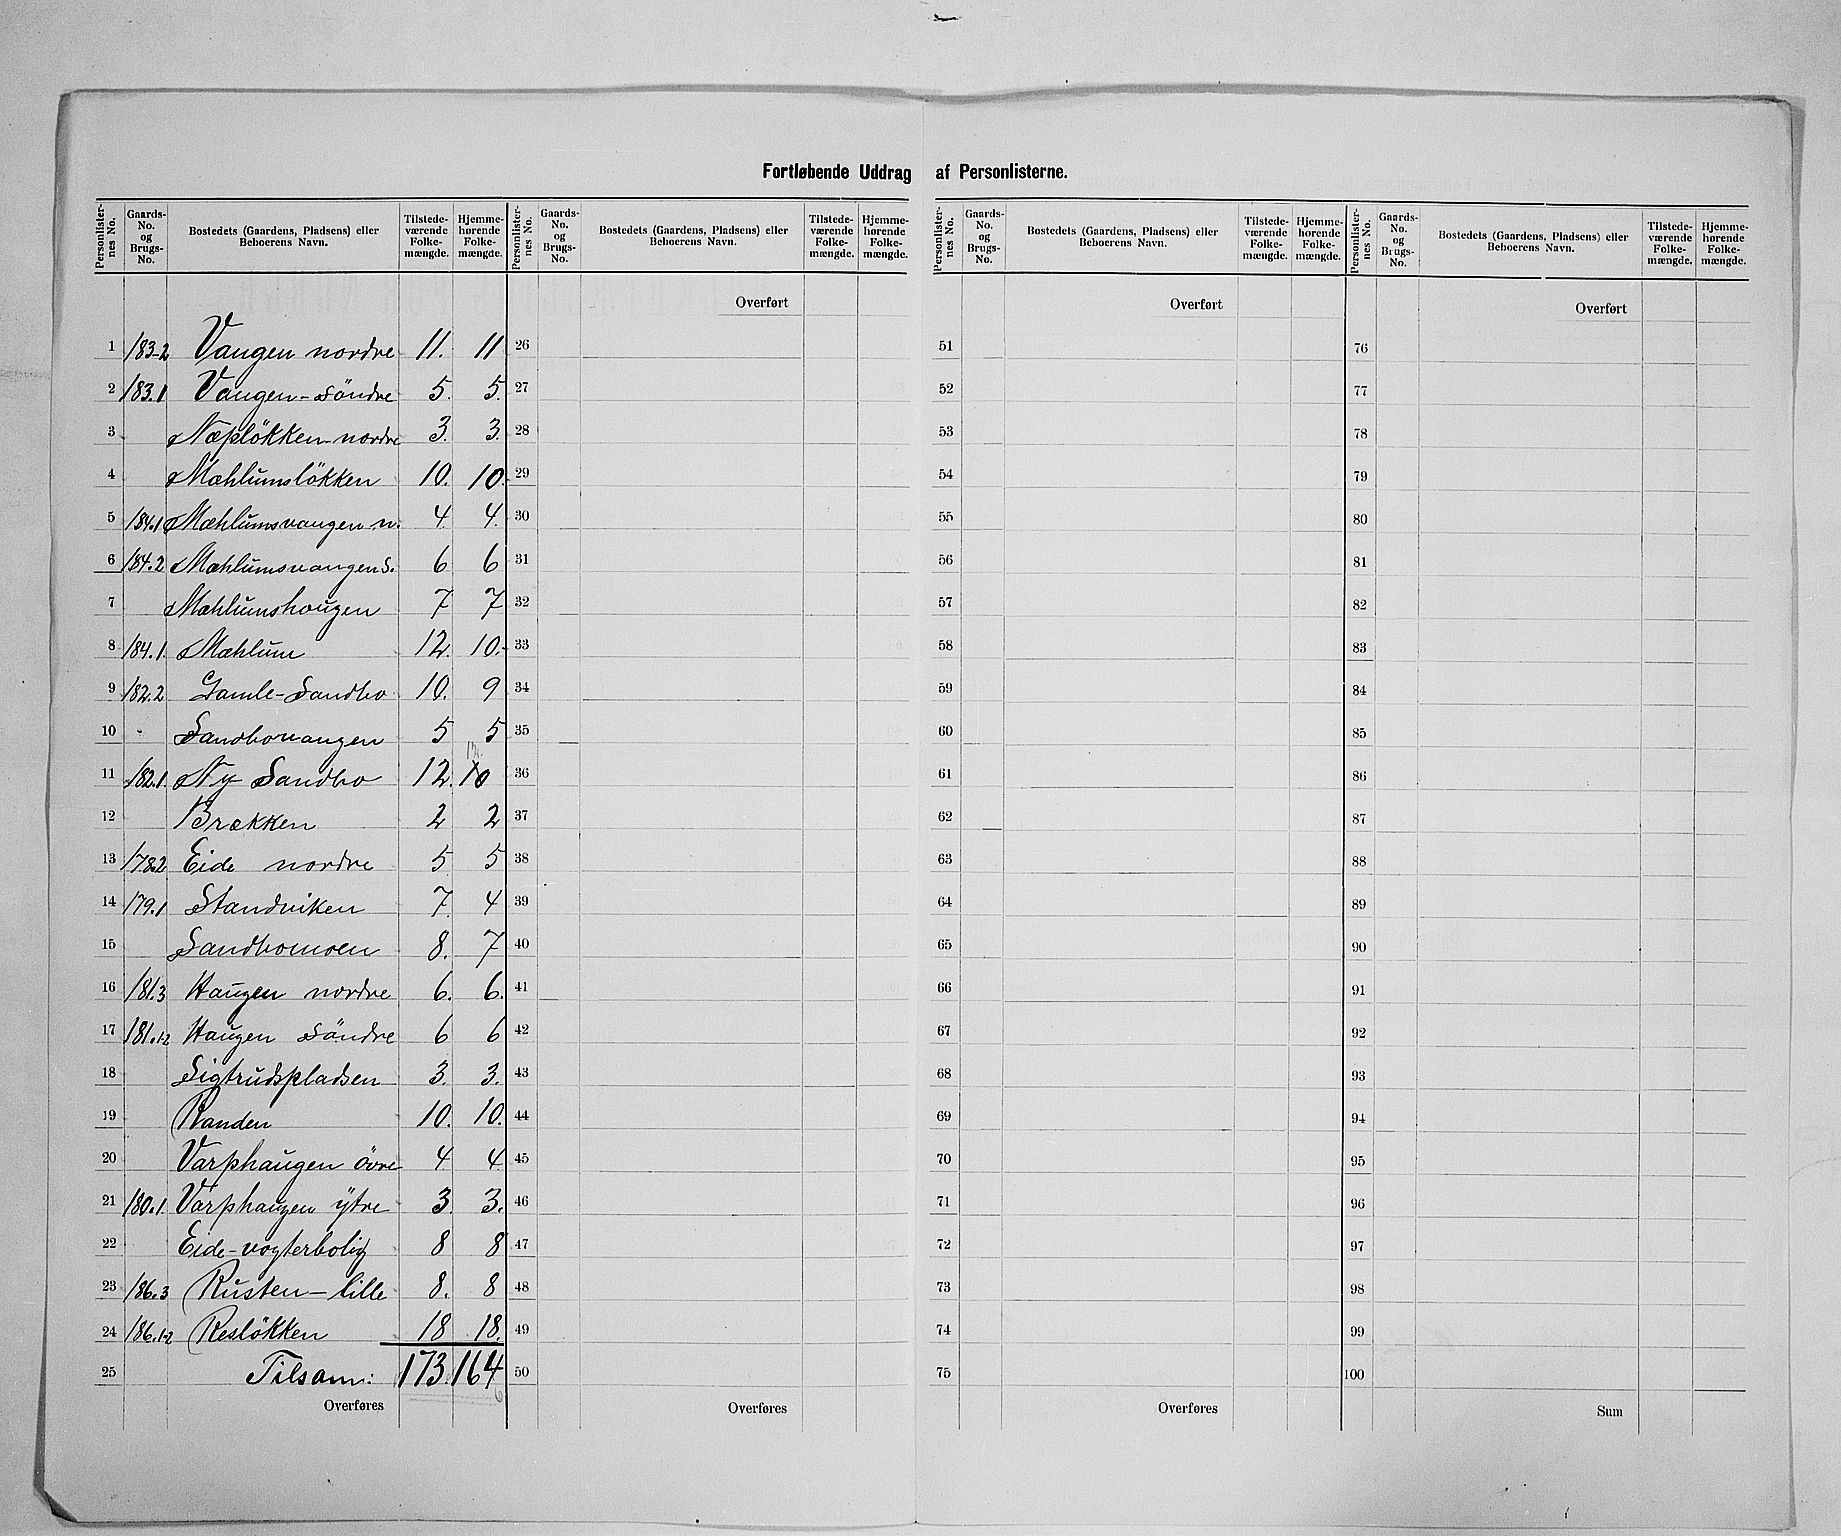 Fortløbende Uddrag af Personlisterne.
Personlister-nes No. Gaards-No. og Brugs-No. Bostedets (Gaardens, Pladsens) eller Beboerens Navn. Tilstede-værende Folke-mængde. Hjemme-hørende Folke-mængde. Personlister-nes No. Gaards-No. og Brugs-No. Bostedets (Gaardens, Pladsens) eller Beboerens Navn. Tilstede-værende Folke-mængde. Hjemme-hørende Folke-mængde. Personlister-nes No. Gaards-No. og Brugs-No. Bostedets (Gaardens, Pladsens) eller Beboerens Navn. Tilstede-værende Folke-mængde. Hjemme-hørende Folke-mængde. Personlister-nes No. Gaards-No. og Brugs-No. Bostedets (Gaardens, Pladsens) eller Beboerens Navn. Tilstede-værende Folke-mængde. Hjemme-hørende Folke-mængde.
Overført Overført Overført
1 183-2 Vangen nordre 11. 11 26 51 76
2 183.1 Vangen-söndre 5. 5. 27 52 77
3 Næpløkken-nordre 3. 3. 28 53 78
4 Mæhlumsløkken 10. 10. 29 54 79
5 184.1 Mæhlumsvangen n. 4. 4. 30 55 80
6 184.2 Mæhlumsvangen s. 6 6 31 56 81
7 Mæhlumshougen 7 7 32 57 82
8 184.1. Mæhlum 12. 10. 33 58 83
9 182.2 Gamle-Sandbo 10. 9 34 59 84
10 Sandbovangen 5 5 35 60 85
12.
11 182.1. Ny Sandbo 12. 10 36 61 86
12 Brækken 2 2 37 62 87
13 178.2 Eide nordre 5 5 38 63 88
14 179.1 Standviken 7. 4 39 64 89
15 Sandbomoen 8. 7 40 65 90
16 181.3 Haugen nordre 6. 6. 41 66 91
17 181.1-2 Haugen söndre 6 6 42 67 92
18 Sigtrudspladsen 3. 3. 43 68 93
19 Randen 10. 10. 44 69 94
20 Varphaugen övre 4 4 45 70 95
21 180.1. Varphaugen ÿtre 3. 3. 46 71 96
22 Eide-vogterbolig 8 8 47 72 97
23 186.3 Rusten-lille 8. 8 48 73 98
24 186.1-2 Resløkken 18 18. 49 74 99
25 Tilsam: 173. 164 50 75 100
6
Overføres Overføres Overføres Sum